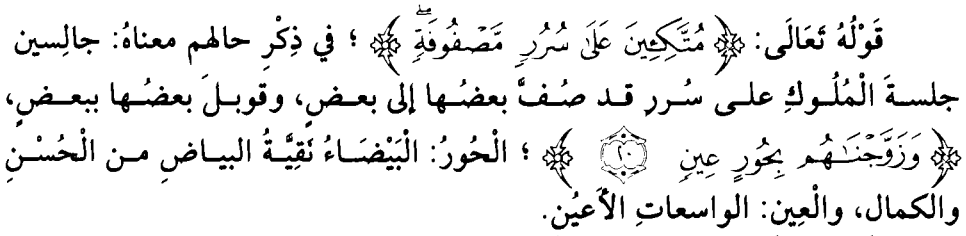 قَوْلُهُ تَعَالَى: ﴿ مُتَّكِئِينَ عَلَىٰ سُرُرٍ مَّصْفُوفَةٍۖ ﴾ ؛ في ذِكْرِ حالهم معناهُ: جالِسين
جلسةَ الْمُلُوكِ على سُررٍ قد صُفَّ بعضُها إلى بعضٍ، وقوبلَ بعضُها ببعضٍ،
﴿ وَزَوَّجْنَـٰهُم بِحُورٍ عِينٍ ۝٢٠ ﴾ ؛ الْحُورُ: الْبَيْضَاءُ نَقِيَّةُ البياضِ من الْحُسْنِ
والكمال، والْعِين: الواسعاتِ الأَعيُن.